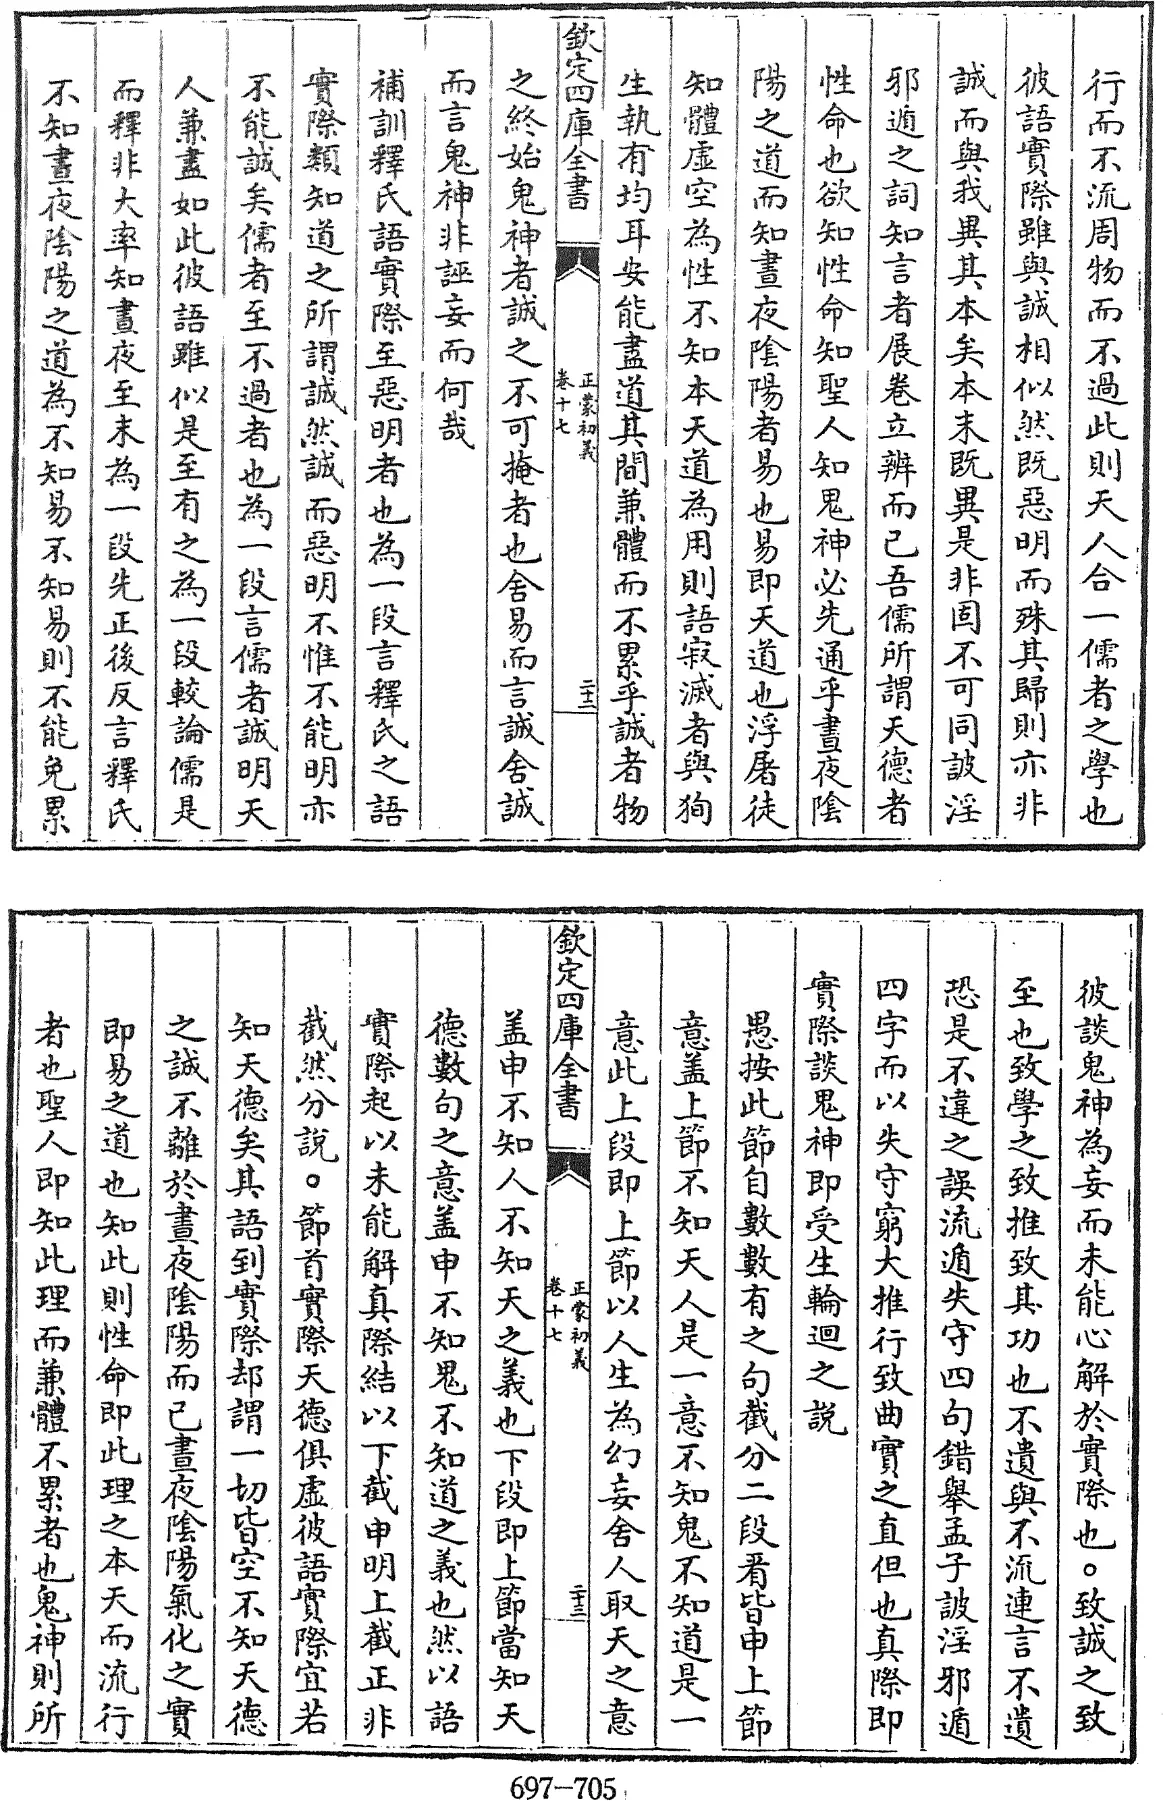 行而不流周物而不過此則天人合一儒者之學也
彼語實際雖與誠相似然既惡明而殊其歸則亦非
誠而與我異其本矣本末既異是非固不可同詖淫
邪遁之詞知言者展卷立辨而已吾儒所謂天德者
性命也欲知性命知聖人知鬼神必先通乎晝夜陰
陽之道而知晝夜陰陽者易也易即天道也浮屠徒
知體虛空為性不知本天道為用則語寂滅者與狥
生執有均耳安能盡道其間兼體而不累乎誠者物
欽定四庫全書
正蒙初義
卷十七
二十三
之終始鬼神者誠之不可掩者也舍易而言誠舍誠
而言鬼神非誣妄而何哉
補訓釋氏語實際至惡明者也為一段言釋氏之語
實際類知道之所謂誠然誠而惡明不惟不能明亦
不能誠矣儒者至不過者也為一段言儒者誠明天
人兼盡如此彼語雖似是至有之為一段較論儒是
而釋非大率知晝夜至末為一段先正後反言釋氏
不知晝夜陰陽之道為不知易不知易則不能免累
彼談鬼神為妄而未能心解於實際也。致誠之致
至也致學之致推致其功也不遺與不流連言不遺
恐是不違之誤流遁失守四句錯舉孟子詖淫邪遁
四字而以失守窮大推行致曲實之直但也真際即
實際談鬼神即受生輪迴之說
愚按此節自數數有之句截分二段看皆申上節
意盖上節不知天人是一意不知鬼不知道是一
意此上段即上節以人生為幻妄舍人取天之意
欽定四庫全書
正蒙初義
卷十七
二十三
盖申不知人不知天之義也下段即上節當知天
德數句之意盖申不知鬼不知道之義也然以語
實際起以未能解真際結以下截申明上截正非
截然分說。節首實際天德俱虛彼語實際宜若
知天德矣其語到實際却謂一切皆空不知天德
之誠不離於晝夜陰陽而已晝夜陰陽氣化之實
即易之道也知此則性命即此理之本天而流行
者也聖人即知此理而兼體不累者也鬼神則所
697-705